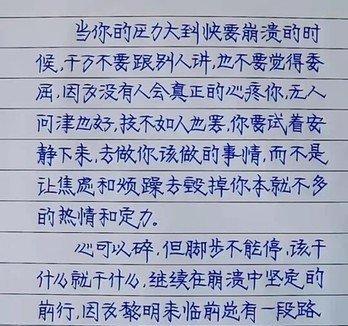 当你的压力大到快要崩溃的时
候,千万不要跟别人讲,也不要觉得委
屈,因为没有人会真正的心疼你,无人
问津也好,技不如人也罢,你要试着安
静下来,去做你该做的事情,而不是
让焦虑和烦躁去毁掉你本就不多
的热情和定力。
心可以碎,但脚步不能停,该干
什么就干什么,继续在崩溃中坚定的
前行,因为黎明来临前总有一段路